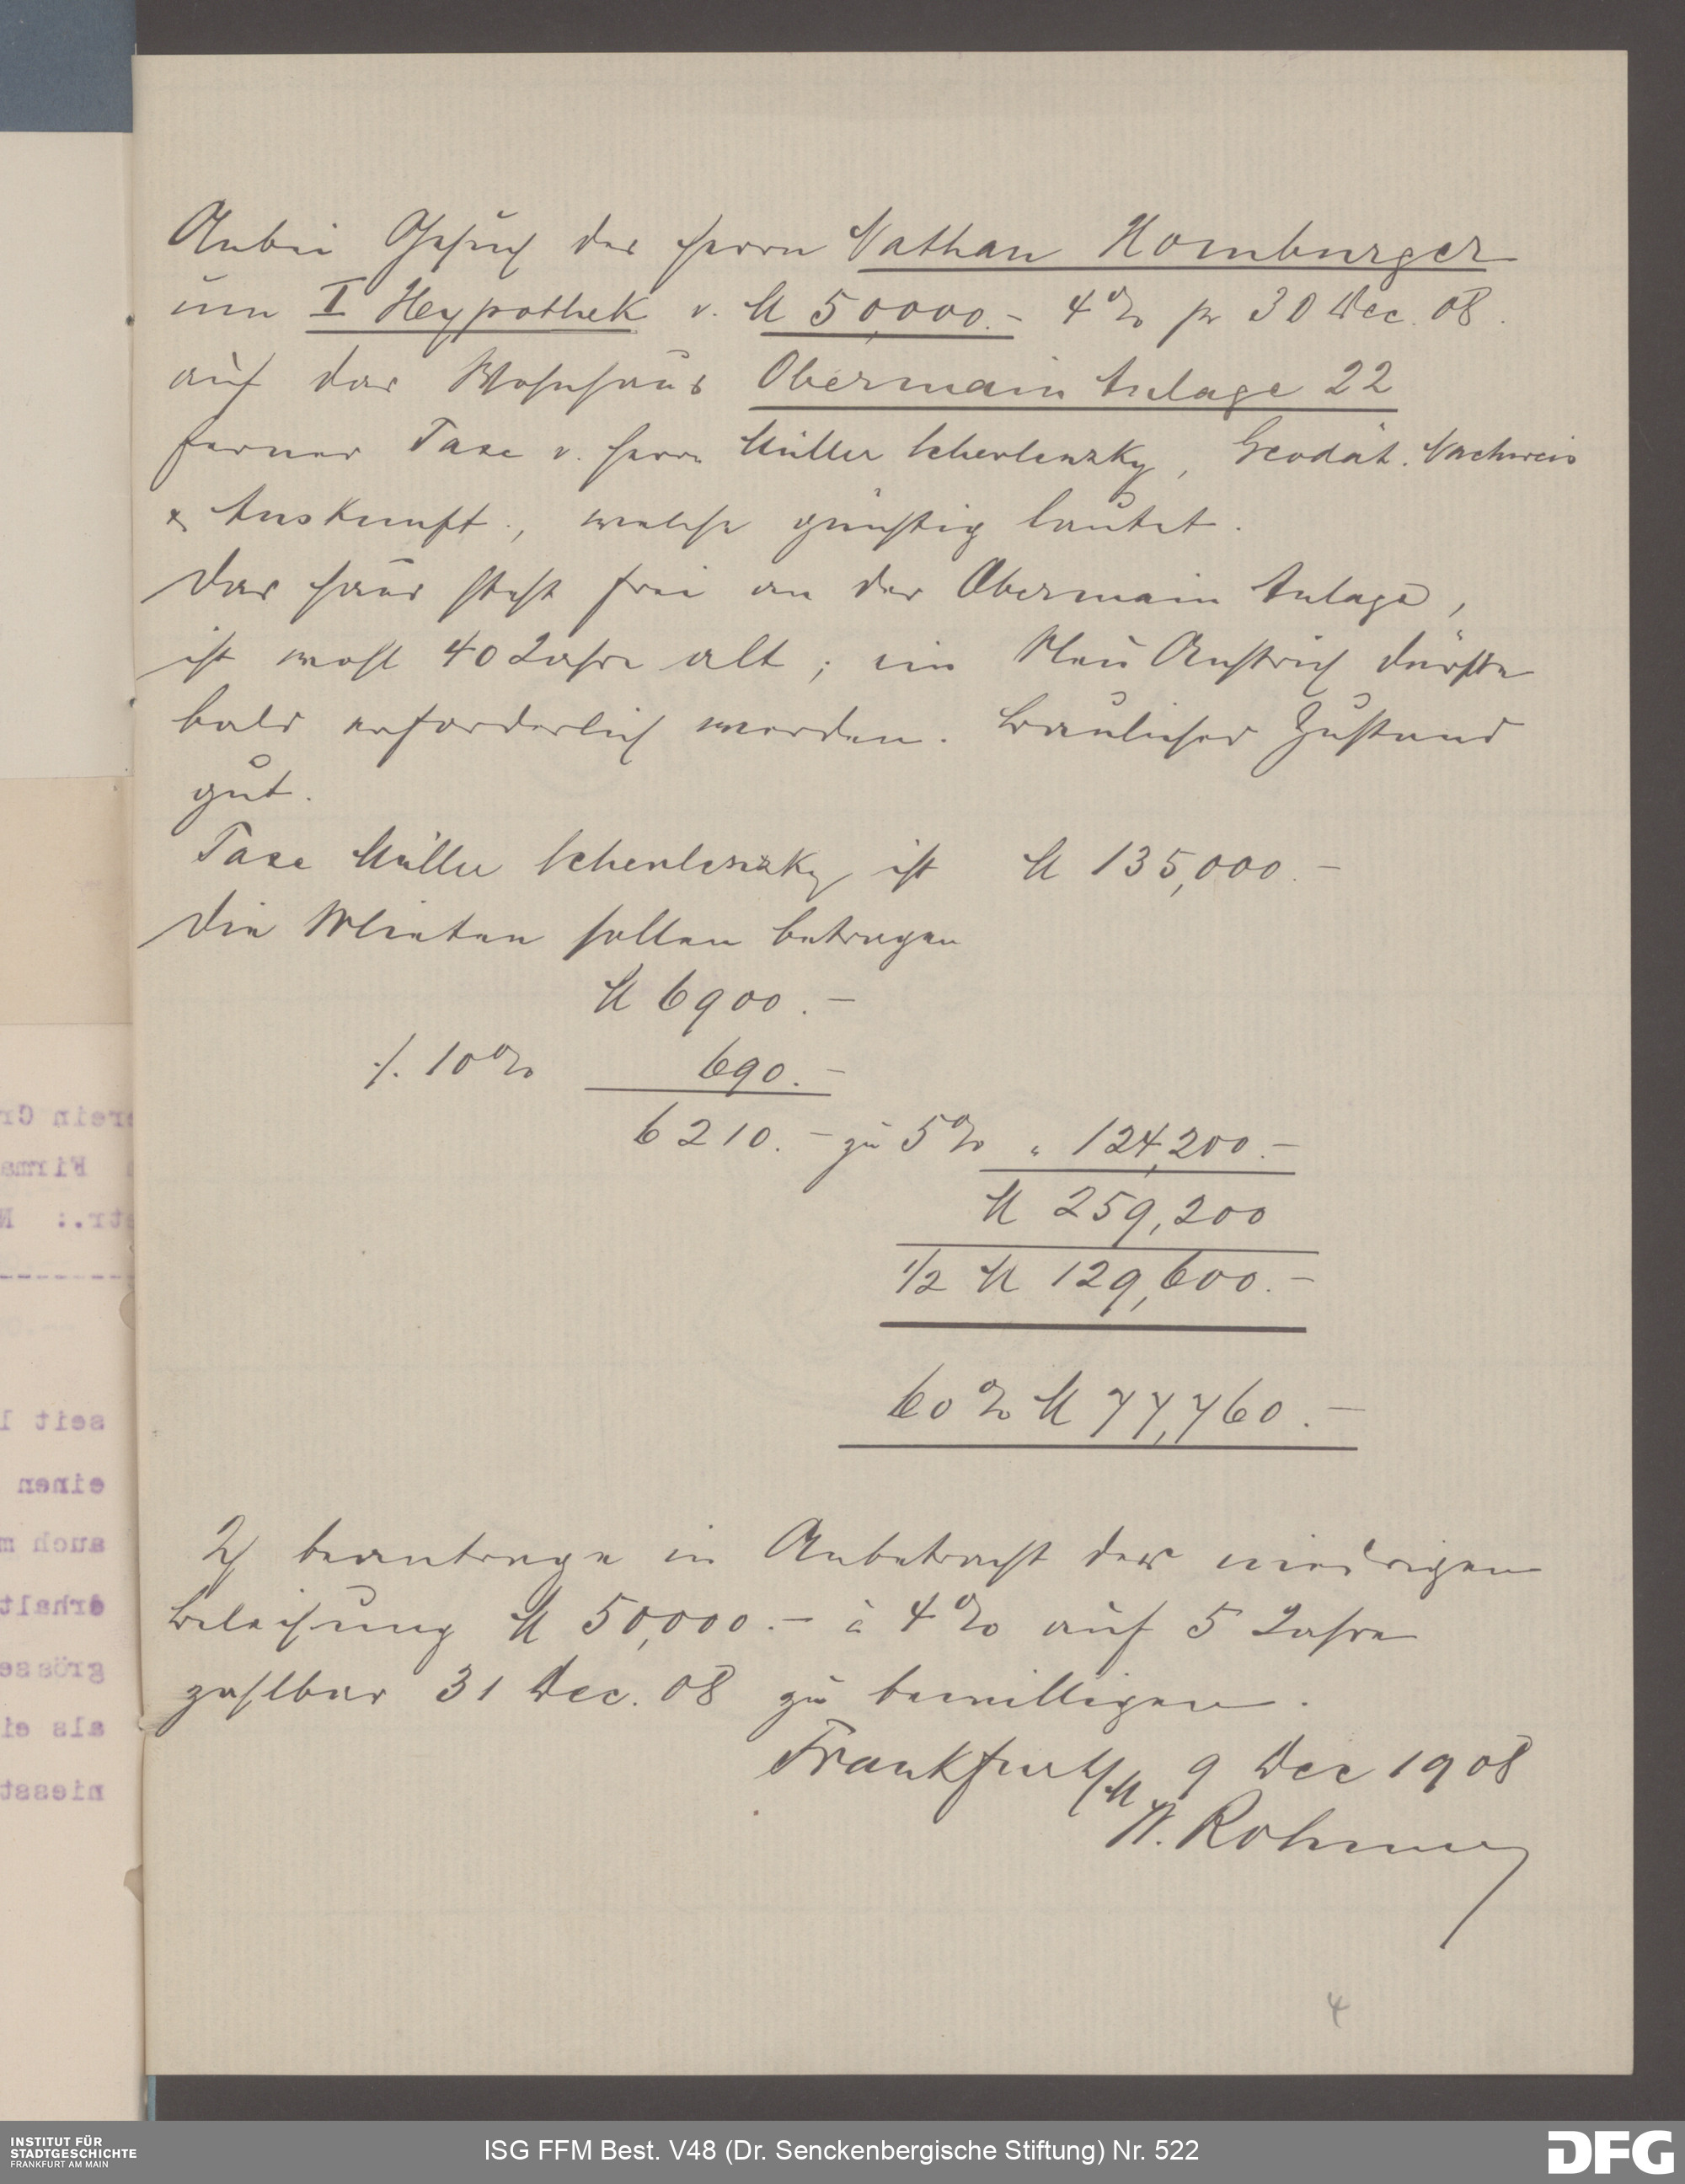 Anbei Gesuch des Herrn Nathan Homburger
um I Heypothek v. M 50,000.- 4% pr 30 Dec. 08.
auf das Wohnhaus Obermain Anlage 22
ferner Taxe v. Herrn Müller Scherlenzky, Geodät. Nachweis
& Auskunft, welche günstig lautet.
Das Haus steht frei an der Obermain Anlage,
ist wohl 40 Jahre alt; ein Neu Anstrich dürfte
bald erforderlich werden. Baulicher Zustand
gut.
Taxe Müller Scherlenzky ist M 135,000.-
Die Mieten sollen betragen
M 6900.-
./. 10% 690.-
6210.- zu 5% " 124,200.-
M 259,200
1/2 M 129,600.-
60% M 77,760.-
Ich beantrage in Anbetracht der niedrigen
Beleihung M 50,000.- à 4% auf 5 Jahre
zahlbar 31 Dec. 08 zu bewilligen.
Frankfurt/M 9 Dec 1908
4
erein Cr
Firma
str.: N
seit l
einen
auch m
erhalt
grösse
als ei
niesst
INSTITUT FÜR
STADTGESCHICHTE
FRANKFURT AM MAIN
ISG FFM Best. V48 (Dr. Senckenbergische Stiftung) Nr. 522
DFG